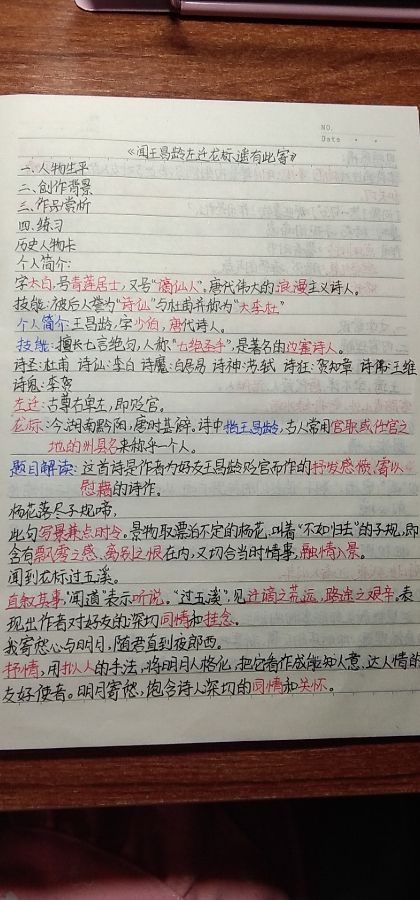 NO.
Date
《闻王昌龄左迁龙标遥有此寄》
一、人物生平
二、创作背景
三、作品赏析
四、练习
历史人物卡
个人简介:
字太白,号青莲居士,又号“谪仙人”,唐代伟大的浪漫主义诗人。
技能:被后人誉为“诗仙”与杜甫并称为“大李杜”
个人简介:王昌龄,字少伯,唐代诗人。
技能:擅长七言绝句,人称“七绝圣手”,是著名的边塞诗人。
诗圣:杜甫 诗仙:李白 诗魔:白居易 诗神:苏轼 诗狂:贺知章 诗佛:王维
诗鬼:李贺
左迁:古尊右卑左,即贬官。
龙标:今湖南黔阳,唐时甚僻。诗中指王昌龄,古人常用官职或任官之
地的州县名来称乎一个人。
题目解读:这首诗是作者为好友王昌龄贬官而作的抒发感愤、寄以
慰藉的诗作。
杨花落尽子规啼,
此句写景兼点时令。景物取漂泊不定的杨花,叫着“不如归去”的子规,即
含有飘零之感、离别之恨在内,又切合当时情事,融情入景。
闻到龙标过五溪。
直叙其事,“闻道”表示听说。“过五溪”,见迁谪之荒远,路途之艰辛。表
现出作者对好友的深切同情和挂念。
我寄愁心与明月,随君直到夜郎西。
抒情,用拟人的手法,将明月人格化,把它看作成能知人意、达人情的
友好使者。明月寄愁,饱含诗人深切的同情和关怀。